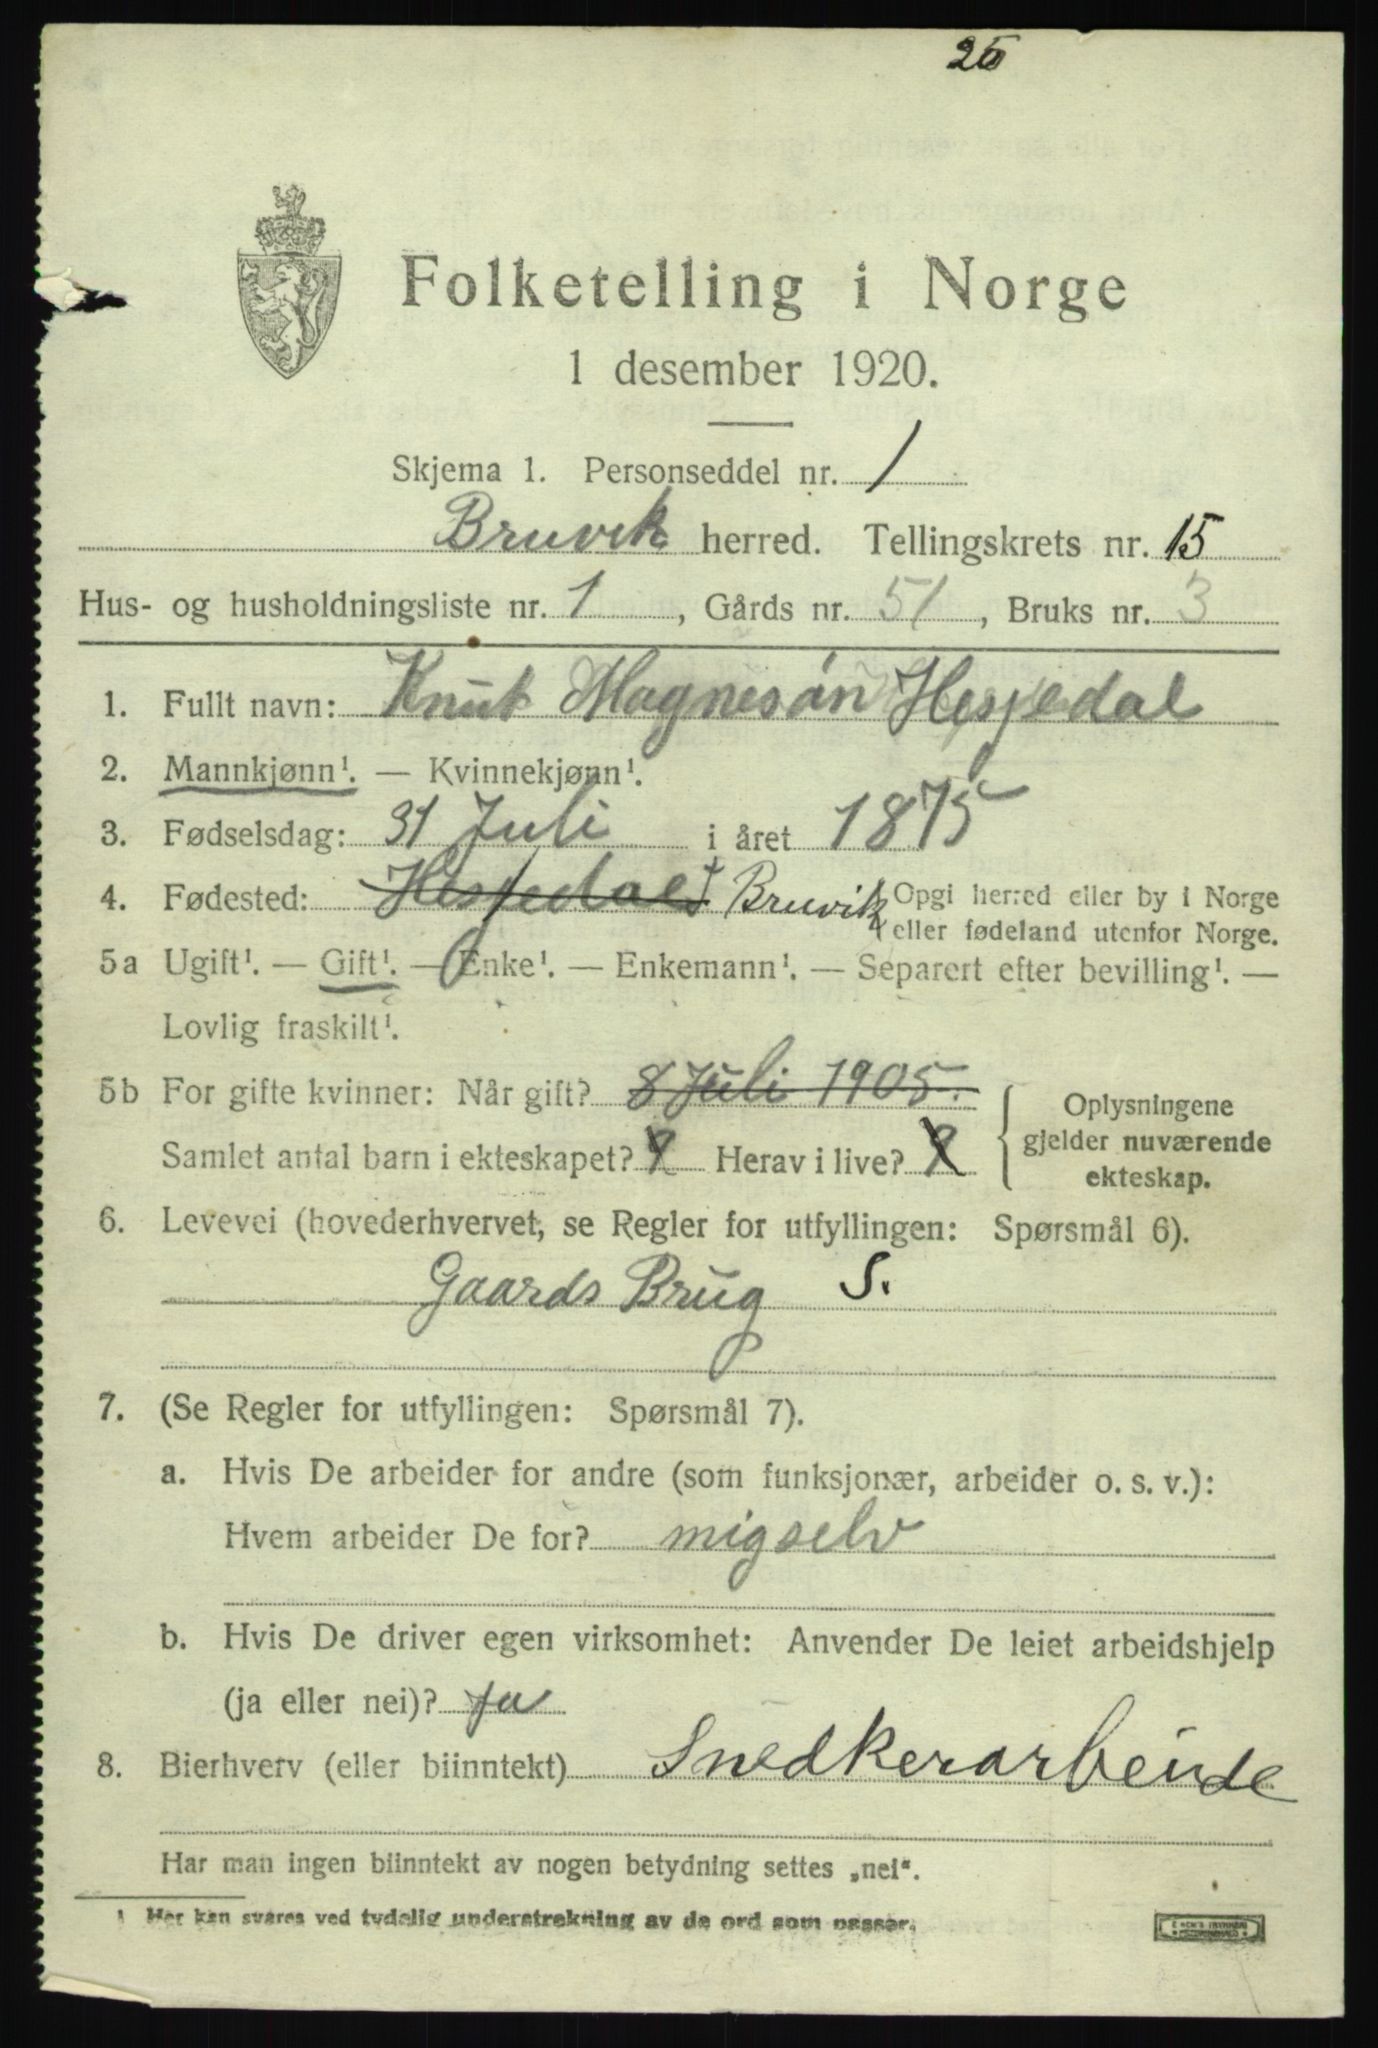 25
Folketelling i Norge
1 desember 1920.
Skjema 1. Personseddel nr. 1
Bruvik herred. Tellingskrets nr. 15
Hus- og husholdningsliste nr. 1, Gårds nr. 51, Bruks nr. 3
1. Fullt navn: Knut Magnesøn Hesjedal
2. Mannkjønn¹. — Kvinnekjønn¹.
3. Fødselsdag: 31 Juli i året 1875
4. Fødested: Hesjedal Bruvik Opgi herred eller by i Norge
eller fødeland utenfor Norge.
5a Ugift¹. — Gift¹. — Enke¹. — Enkemann¹. — Separert efter bevilling¹. —
Lovlig fraskilt¹.
5b For gifte kvinner: Når gift? 8 Juli 1905. Oplysningene
gjelder nuværende
ekteskap.
Samlet antal barn i ekteskapet? 9 Herav i live? 9
6. Levevei (hovederhvervet, se Regler for utfyllingen: Spørsmål 6).
Gaards Brug S.
7. (Se Regler for utfyllingen: Spørsmål 7).
a. Hvis De arbeider for andre (som funksjonær, arbeider o. s. v.):
Hvem arbeider De for? migselv
b. Hvis De driver egen virksomhet: Anvender De leiet arbeidshjelp
(ja eller nei)? ja
8. Bierhverv (eller biinntekt) Snedkerarbeide
Har man ingen biinntekt av nogen betydning settes „nei“.
¹ Her kan svares ved tydelig understrekning av de ord som passer.